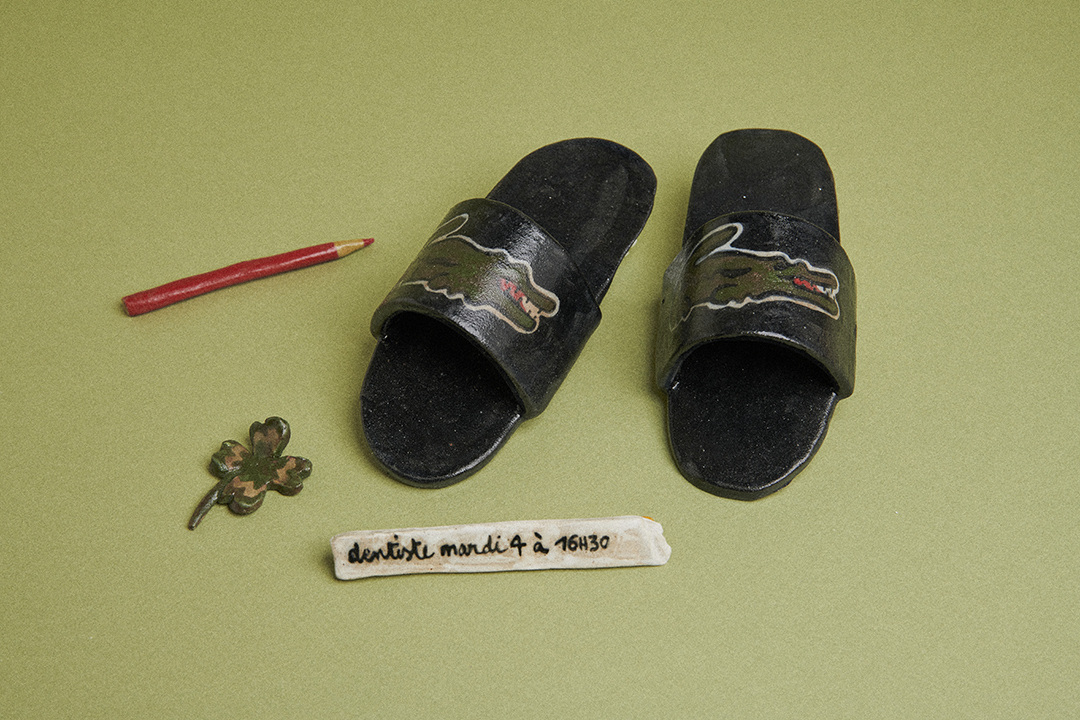 dentiste mardi 4 à 16H30